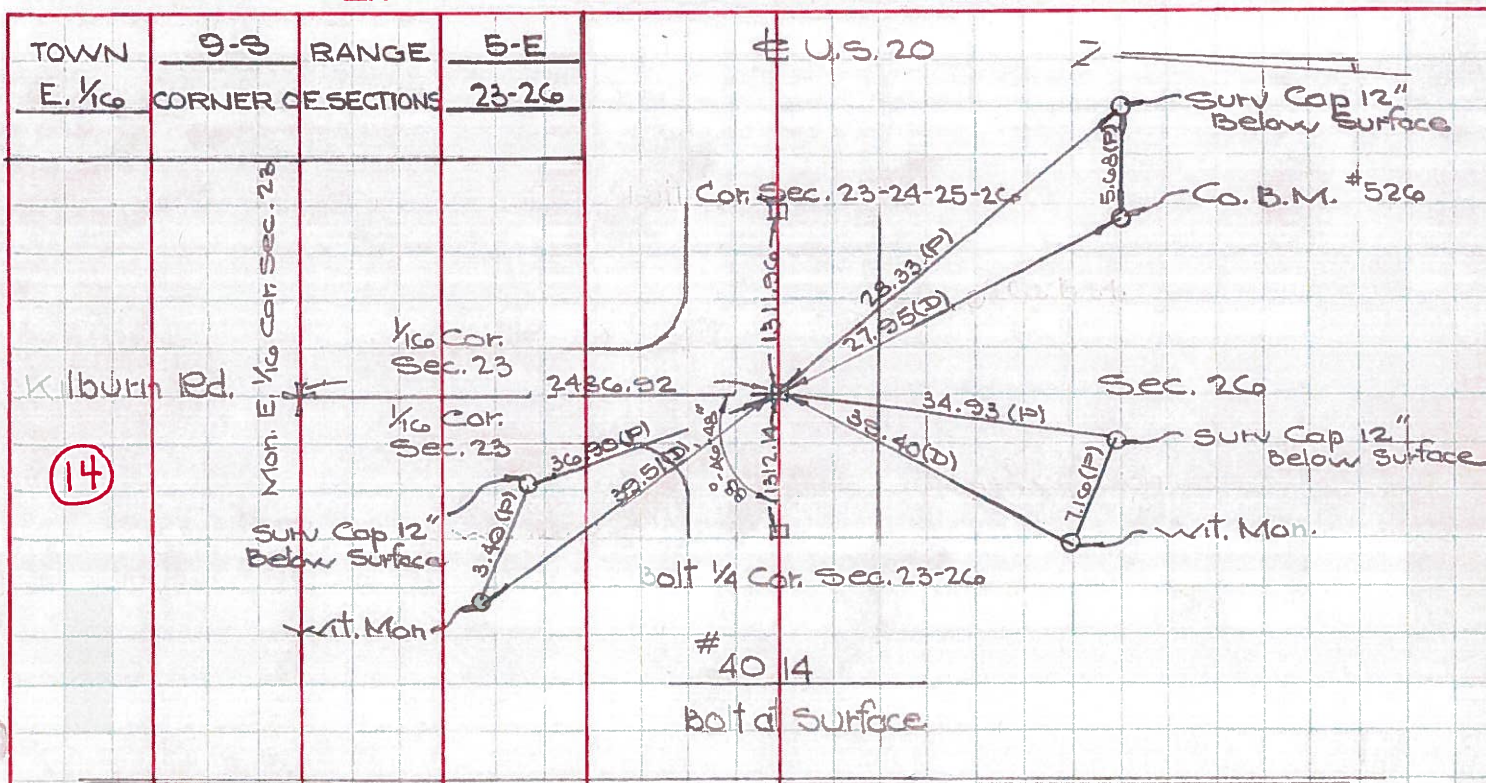 TOWN 9-S RANGE 5-E
E. 1/16 CORNER OF SECTIONS 23-26
℄ U.S. 20
Z
Surv Cap 12"
Below Surface
5.68(P)
Co. B.M. #526
Cor. Sec. 23-24-25-26
28.33(P)
27.95(D)
1311.96
Mon. E. 1/16 Cor. Sec. 23
1/16 Cor.
Sec. 23
Kilburn Rd.
2486.92
Sec. 26
1/16 Cor.
Sec. 23
34.93(P)
38.40(D)
Surv Cap 12"
Below Surface
7.16(P)
Wit. Mon.
36.90(P)
39.51(D)
1312.14
14
Surv Cap 12"
Below Surface
3.40(P)
Wit. Mon
Bolt 1/4 Cor. Sec. 23-26
#4014
Bolt at Surface